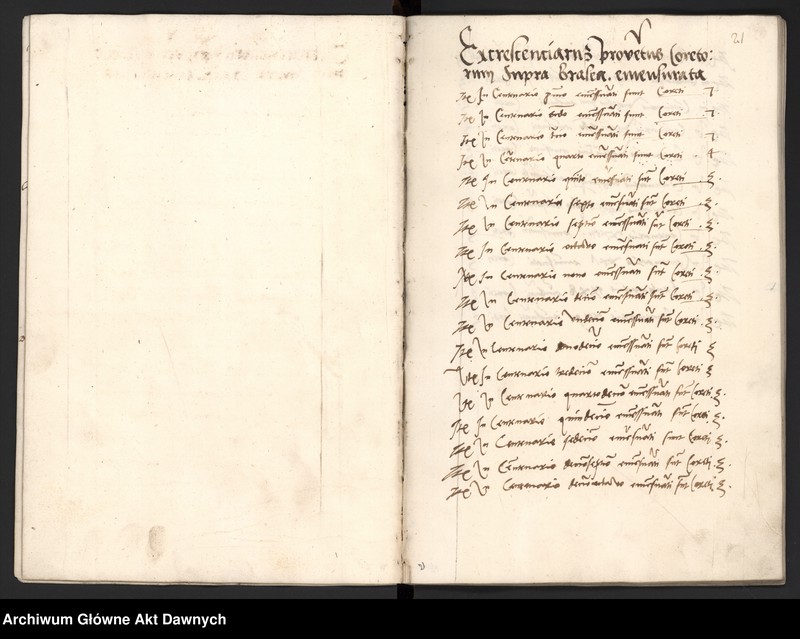 21
Excrescenciarum proventus Coreto:
rum Supra brasea. emensurata
Itē In Centenario pmo emēsurati sunt Coreti 7
Itē In Centenario scdo emēsurati sunt Coreti 7
Itē In Centenario tcio emēsurati sunt Coreti 7
Itē In Centenario quarto emēsurati sunt Coreti
Itē In Centenario quīto emēsurati sūt Coreti
Itē In Centenario sexto emēsurati sūt Coreti
Itē In Centenario septīo emēsurati sūt Coreti
Itē In Centenario octavo emēsurati sūt Coreti
Itē In Centenario nono emēsurati sūt Coreti
Itē In Centenario decīo emēsurati sūt Coreti
Itē In Centenario undecīo emēsurati sūt Coreti
Itē In Centenario duodecīo emēsurati sūt Coreti
Itē In Centenario tredecīo emēsurati sūt Coreti
Itē In Centenario quartodecīo emēsurati sūt Coreti
Itē In Centenario quindecīo emēsurati sūt Coreti
Itē In Centenario sedecīo emēsurati sunt Coreti
Itē In Centenario decīoseptīo emēsurati sūt Coreti
Itē In Centenario decīooctavo emēsurati sūt Coreti
21
Archiwum Główne Akt Dawnych